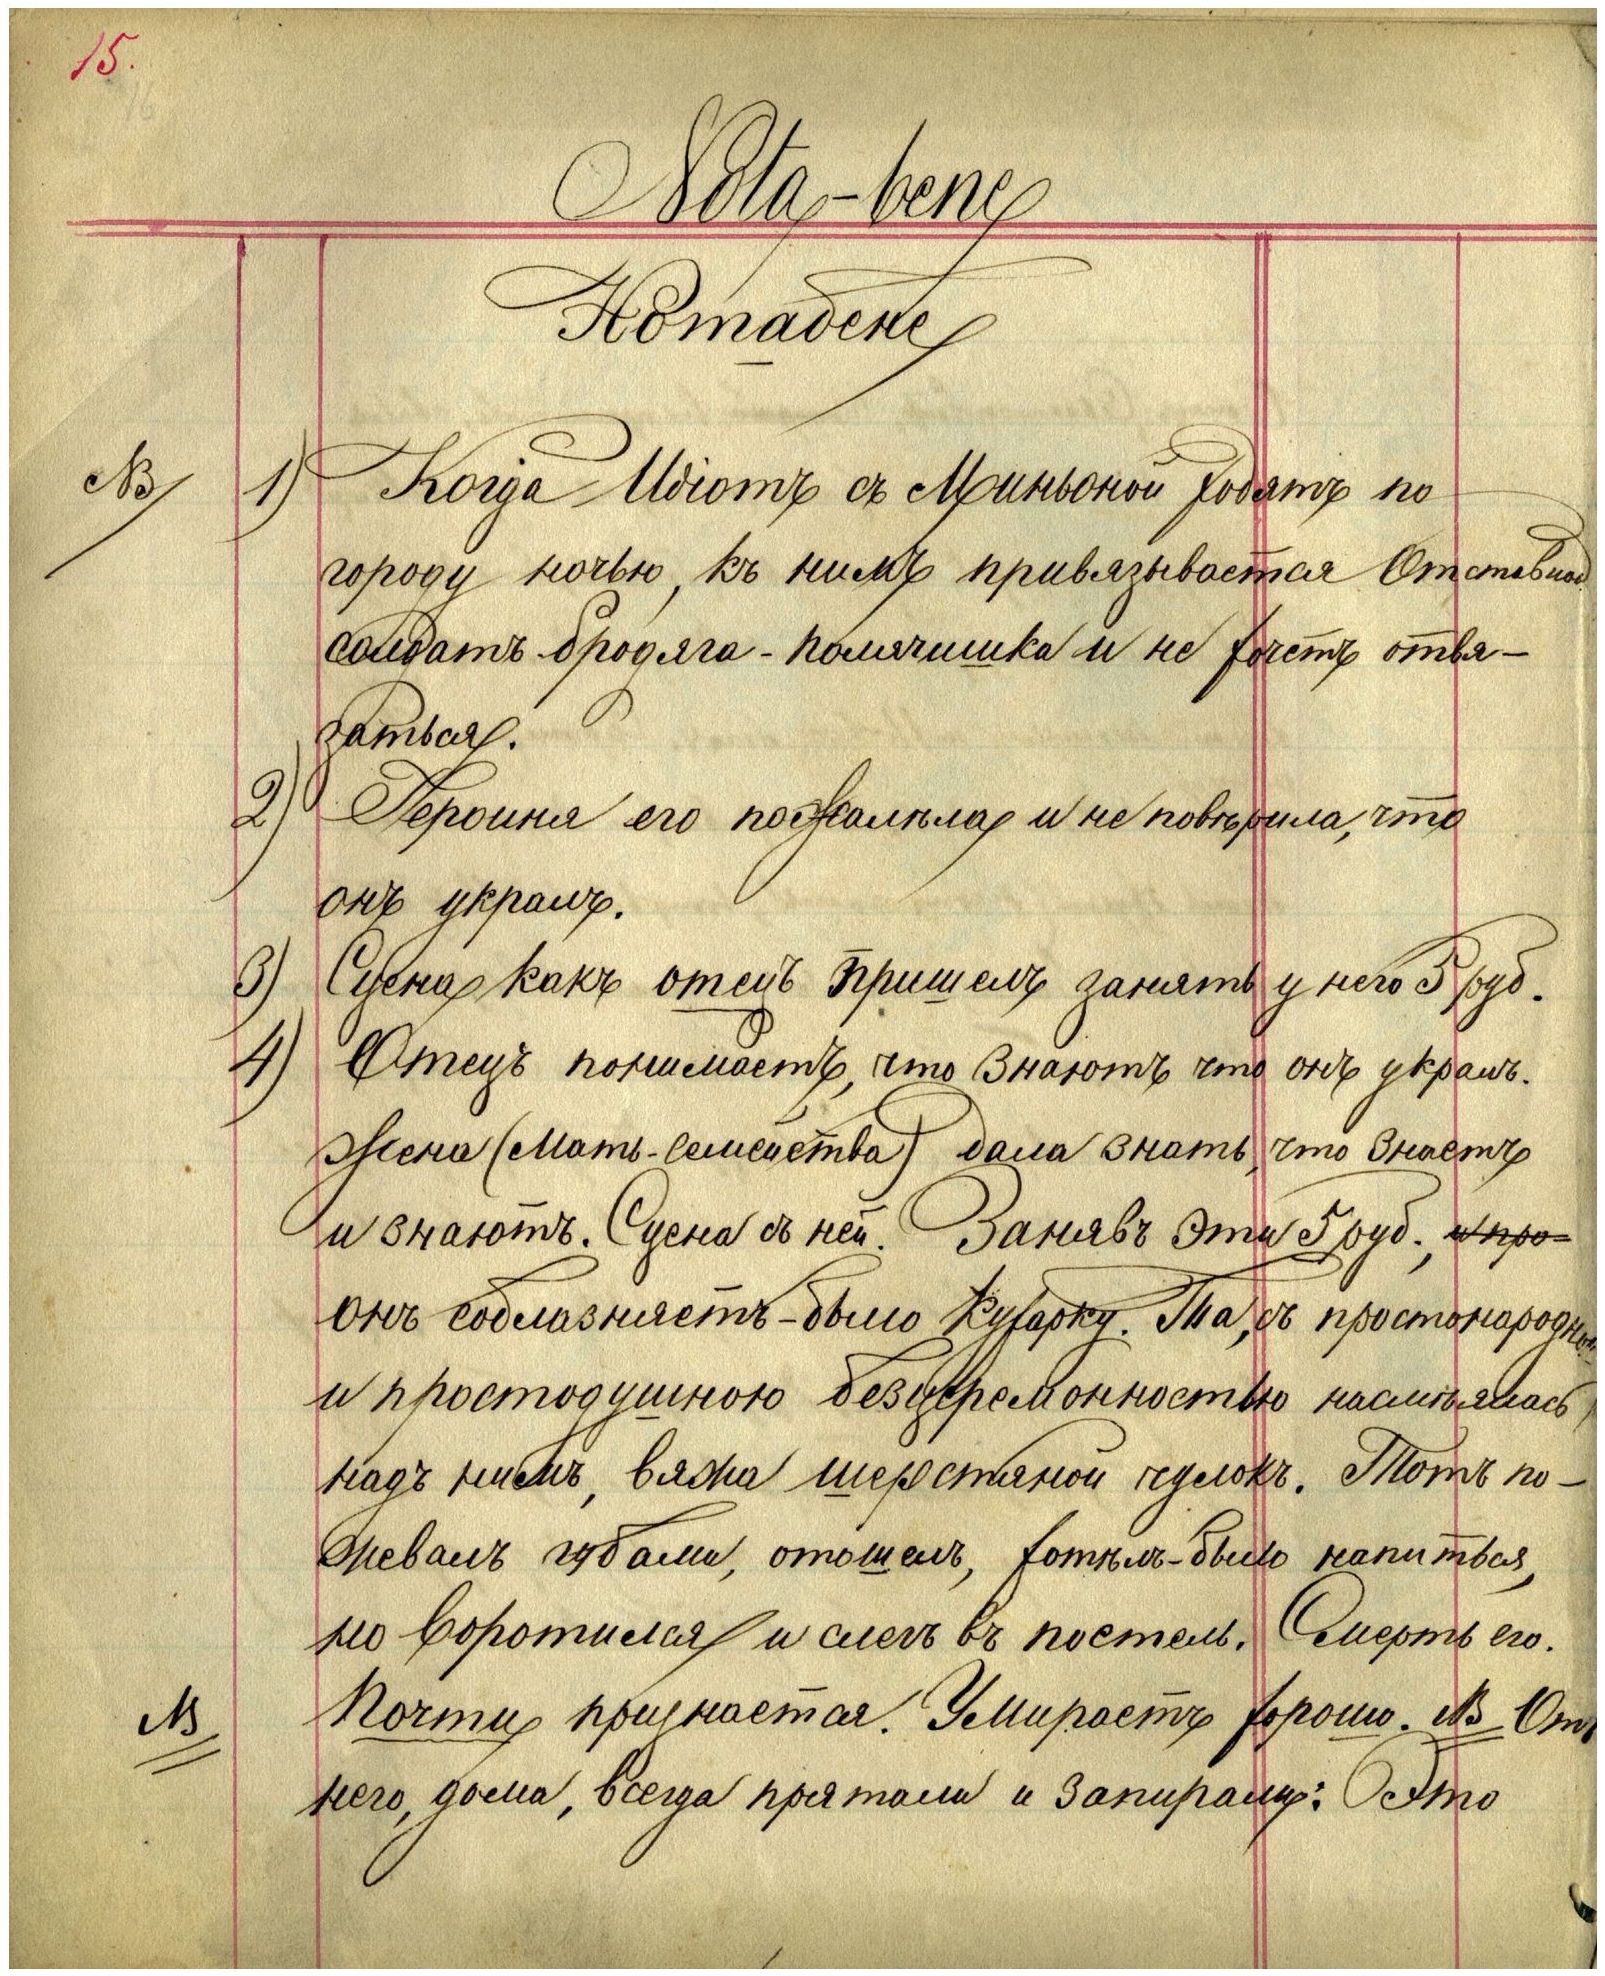 15.
16
Nota-bene
Нотабене
NB 1) Когда Идіотъ съ Миньоной ходятъ по
городу ночью, къ нимъ привязывается Отставной
солдатъ бродяга - полячишка и не хочетъ отвя-
заться.
2) Героиня его пожалѣла и не повѣрила, что
онъ укралъ.
3) Сцена какъ отецъ пришелъ занять у него 5 руб.
4) Отецъ понимаетъ, что знаютъ что онъ укралъ.
Жена (Мать-семейства) дала знать, что знаетъ
и знаютъ. Сцена съ ней. Занявъ эти 5 руб., и про-
онъ соблазняетъ-было кухарку. Та, съ простонародною
и простодушною безцеремонностью насмѣялась
надъ нимъ, вяжа шерстяной чулокъ. Тотъ по-
жевалъ губами, отошелъ, хотѣлъ-было напиться,
но воротился и слегъ въ постель. Смерть его.
NB Почти признается. Умираетъ хорошо. NB Отъ
него, дома, всегда прятали и запирали: Это